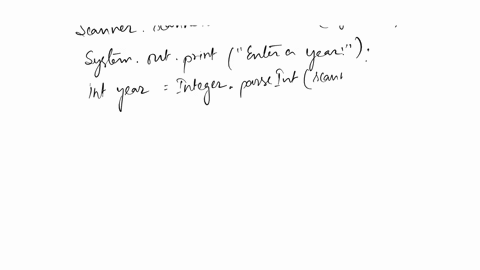 Scanner.
System.out.print ("Enter a year:");
int year = Integer.parseInt (scan